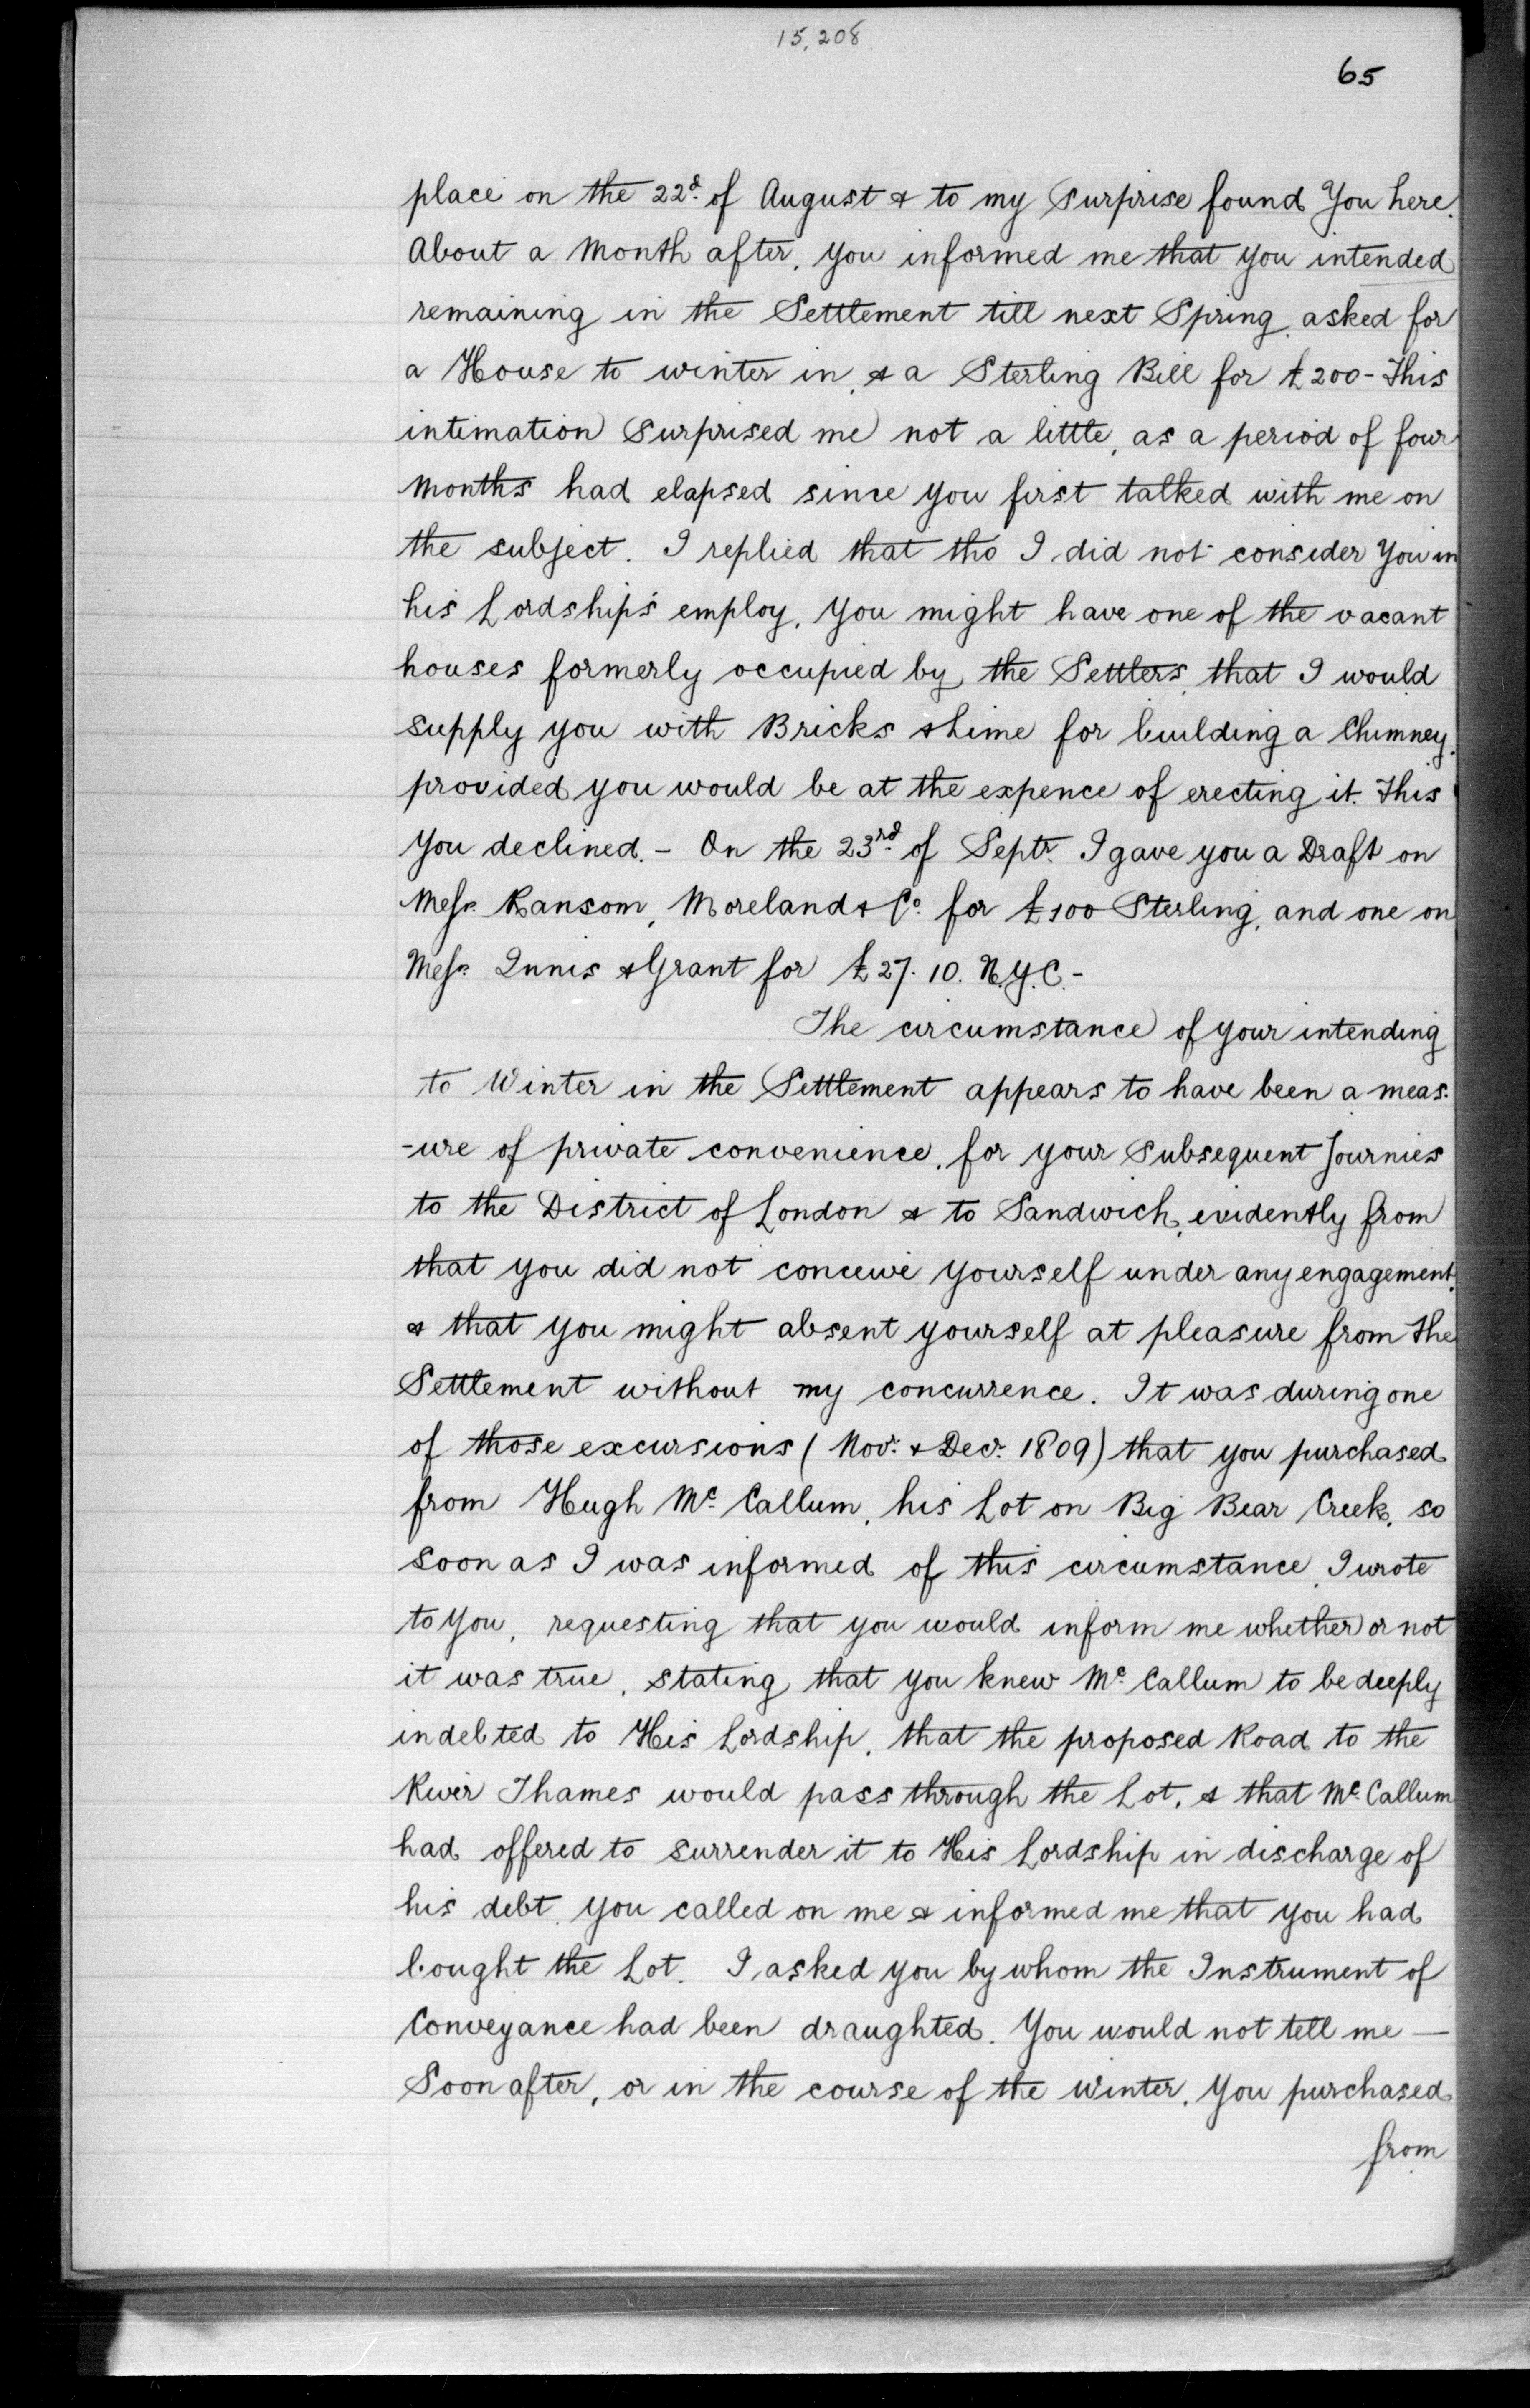 15,208
65
place on the 22d. of August & to my Surprise found You here.
About a Month after, you informed me that you intended
remaining in the Settlement till next Spring, asked for
a House to winter in, & a Sterling Bill for £200 - This
intimation Surprised me not a little, as a period of four
Months had elapsed since you first talked with me on
the subject. I replied that tho I did not consider You in
his Lordship's employ, You might have one of the vacant
houses formerly occupied by the Settlers, that I would
supply you with Bricks & Lime for building a Chimney.
provided you would be at the expence of erecting it. This
You declined. - On the 23rd. of Septr. I gave you a Draft on
Messrs. Ransom, Moreland & Co. for £100 Sterling, and one on
Messrs. Innis & Grant for £27. 10. N.Y.C. -
The circumstance of your intending
to Winter in the Settlement appears to have been a meas-
-ure of private convenience, for your Subsequent Journies
to the District of London & to Sandwich, evidently from
that you did not conceive yourself under any engagement,
& that you might absent yourself at pleasure from the
Settlement without my concurrence. It was during one
of those excursions (Novr. & Decr. 1809) that you purchased
from Hugh Mc. Callum, his Lot on Big Bear Creek, so
soon as I was informed of this circumstance, I wrote
to You, requesting that you would inform me whether or not
it was true, stating, that you knew Mc. Callum to be deeply
indebted to His Lordship, that the proposed Road to the
River Thames would pass through the Lot, & that Mc. Callum
had offered to surrender it to His Lordship in discharge of
his debt. You called on me & informed me that you had
bought the Lot. I asked you by whom the Instrument of
Conveyance had been draughted. You would not tell me —
Soon after, or in the course of the Winter, You purchased
from